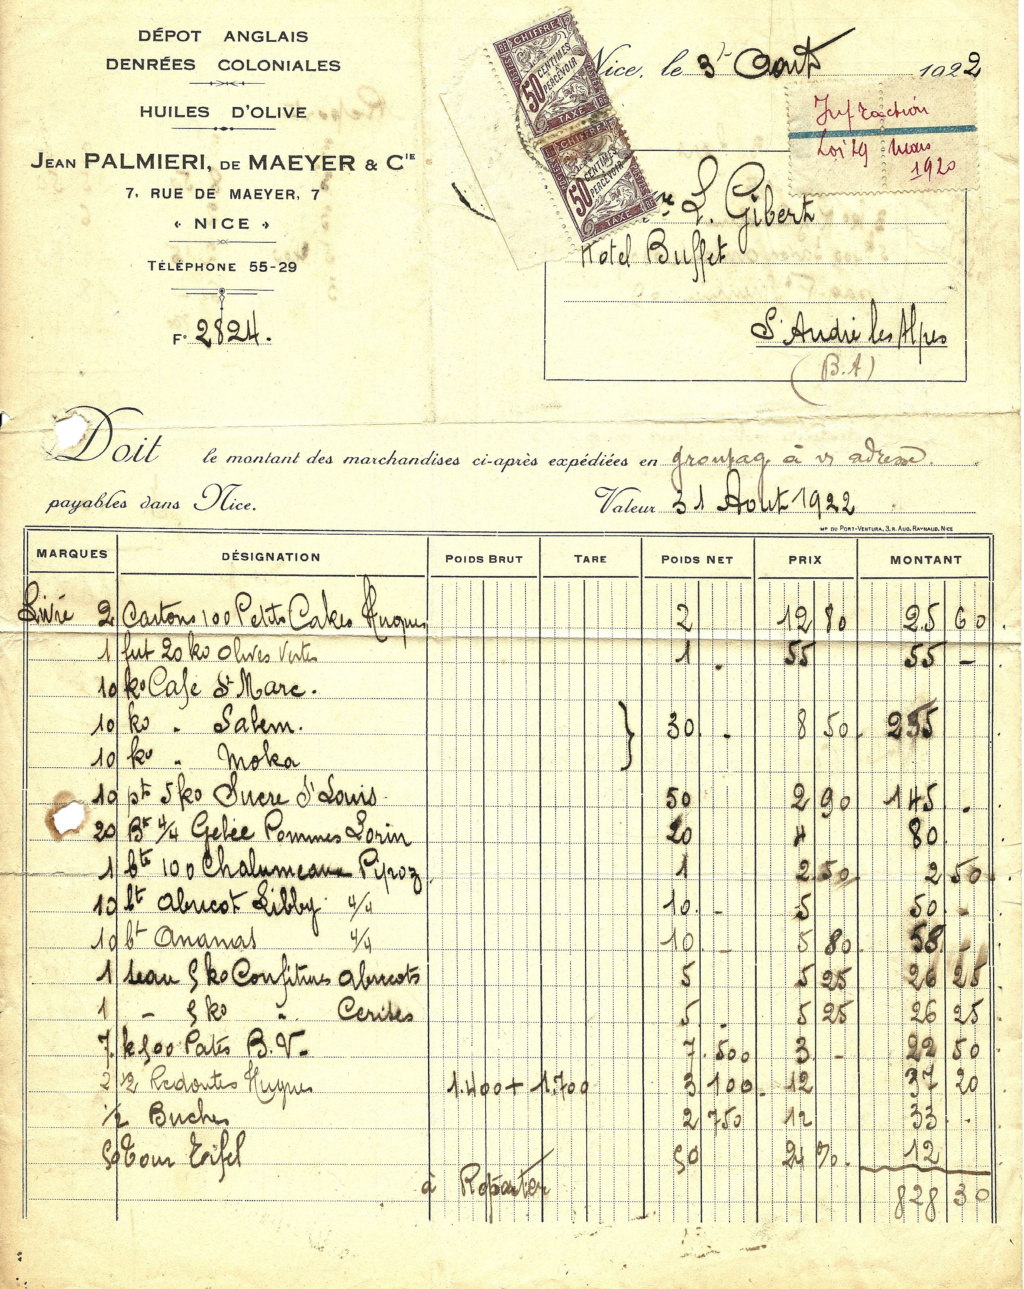 DÉPOT ANGLAIS
DENRÉES COLONIALES
HUILES D'OLIVE
JEAN PALMIERI, DE MAEYER & CIE
7, RUE DE MAEYER, 7
« NICE »
TÉLÉPHONE 55-29
F° 2824.
CHIFFRE
50 CENTIMES
A PERCEVOIR
TAXE
CHIFFRE
50 CENTIMES
A PERCEVOIR
TAXE
Nice, le 31 Août 1922
Infraction
Loi 29 mars
1920
L. Gibert
Hotel Buffet
St André les Alpes
(B.A)
Doit le montant des marchandises ci-après expédiées en groupag à vs adresse.
payables dans Nice. Valeur 31 Aout 1922
IMP DU PORT-VENTURA, 3, R. AUG. RAYNAUD, NICE
MARQUES DÉSIGNATION POIDS BRUT TARE POIDS NET PRIX MONTANT
Livré 2 Cartons 100 Petits Cakes Hugues 2 12 80 25 60
1 fut 20 ko Olives Vertes 1 55 55 -
10 ko Café St Marc.
10 ko " Salem. } 30 8 50 255
10 ko " Moka
10 pts 5 ko Sucre St Louis 50 2 90 145
20 Bts 4/4 Gelée Pommes Lorin 20 4 80
1 bte 100 Chalumeaux 1 2 50 2 50
10 bt Abricot Libby 4/4 10 5 50 -
10 bt Ananas 4/4 10 5 80 58 -
1 seau 5 ko Confitures Abricots 5 5 25 26 25
1 - 5 ko " Cerises 5 5 25 26 25
7 k 500 Pates B.V. 7 500 3 - 22 50
2 1/2 Redoutes Hugues 1.400 + 1.700 3 100 12 37 20
1/2 Buches 2 750 12 33
50 Tour Eifel 50 24 %. 12
à Reporter 828 30